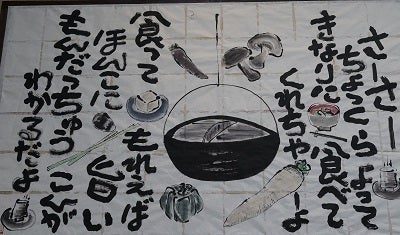 さーさー
ちょっくらよって
きなりに食べて
くれちゃーよ
食って もれえば
ほんこに 旨い
もんだっちゅう こんが
わかるだよ